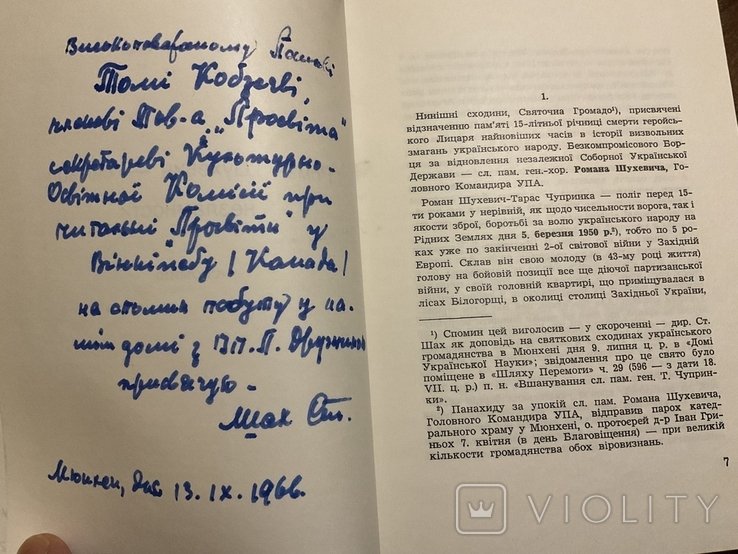 Високоповажаному Панові
Томі Кобзеєві,
членові Тов-а „Просвіта"
секретареві Культурно-
Освітної Комісії при
читальні „Просвіти" у
Вінніпеґу / Канада /
на спомин побуту у на-
шім домі з ВП. П. Дружиною
присвячую –
Шах Ст.
Мюнхен, дня 13. IX. 1966.
1.
Нинішні сходини, Святочна Громадо¹), присвячені
відзначенню пам'яті 15-літньої річниці смерти геройсь-
кого Лицаря найновіших часів в історії визвольних
змагань українського народу. Безкомпромісового Бор-
ця за відновлення незалежної Соборної Української
Держави — сл. пам. ген.-хор. Романа Шухевича, Го-
ловного Командира УПА.
Роман Шухевич-Тарас Чупринка — поліг перед 15-
ти роками у нерівній, як щодо чисельности ворога, так і
якости зброї, боротьбі за волю українського народу на
Рідних Землях дня 5. березня 1950 р.²), тобто по 5 ро-
ках уже по закінченні 2-ої світової війни у Західній
Европі. Склав він свою молоду (в 43-му році життя)
голову на бойовій позиції все ще діючої партизанської
війни, у своїй головній квартирі, що приміщувалася в
лісах Білогорщі, в околиці столиці Західньої України,
¹) Спомин цей виголосив — у скороченні — дир. Ст.
Шах як доповідь на святкових сходинах українського
громадянства в Мюнхені дня 9. липня ц. р. в «Домі
Української Науки»; звідомлення про це свято було
поміщене в «Шляху Перемоги» ч. 29 (596 — з дати 18.
VII. ц. р.) п. н. «Вшанування сл. пам. ген. Т. Чуприн-
ки».
²) Панахиду за упокій сл. пам. Романа Шухевича,
Головного Командира УПА, відправив парох катед-
рального храму у Мюнхені, о. протоєрей д-р Іван Гри-
ньох 7. квітня (в день Благовіщення) — при великій
кількости громадянства обох віровизнань.
7
VIOLITY